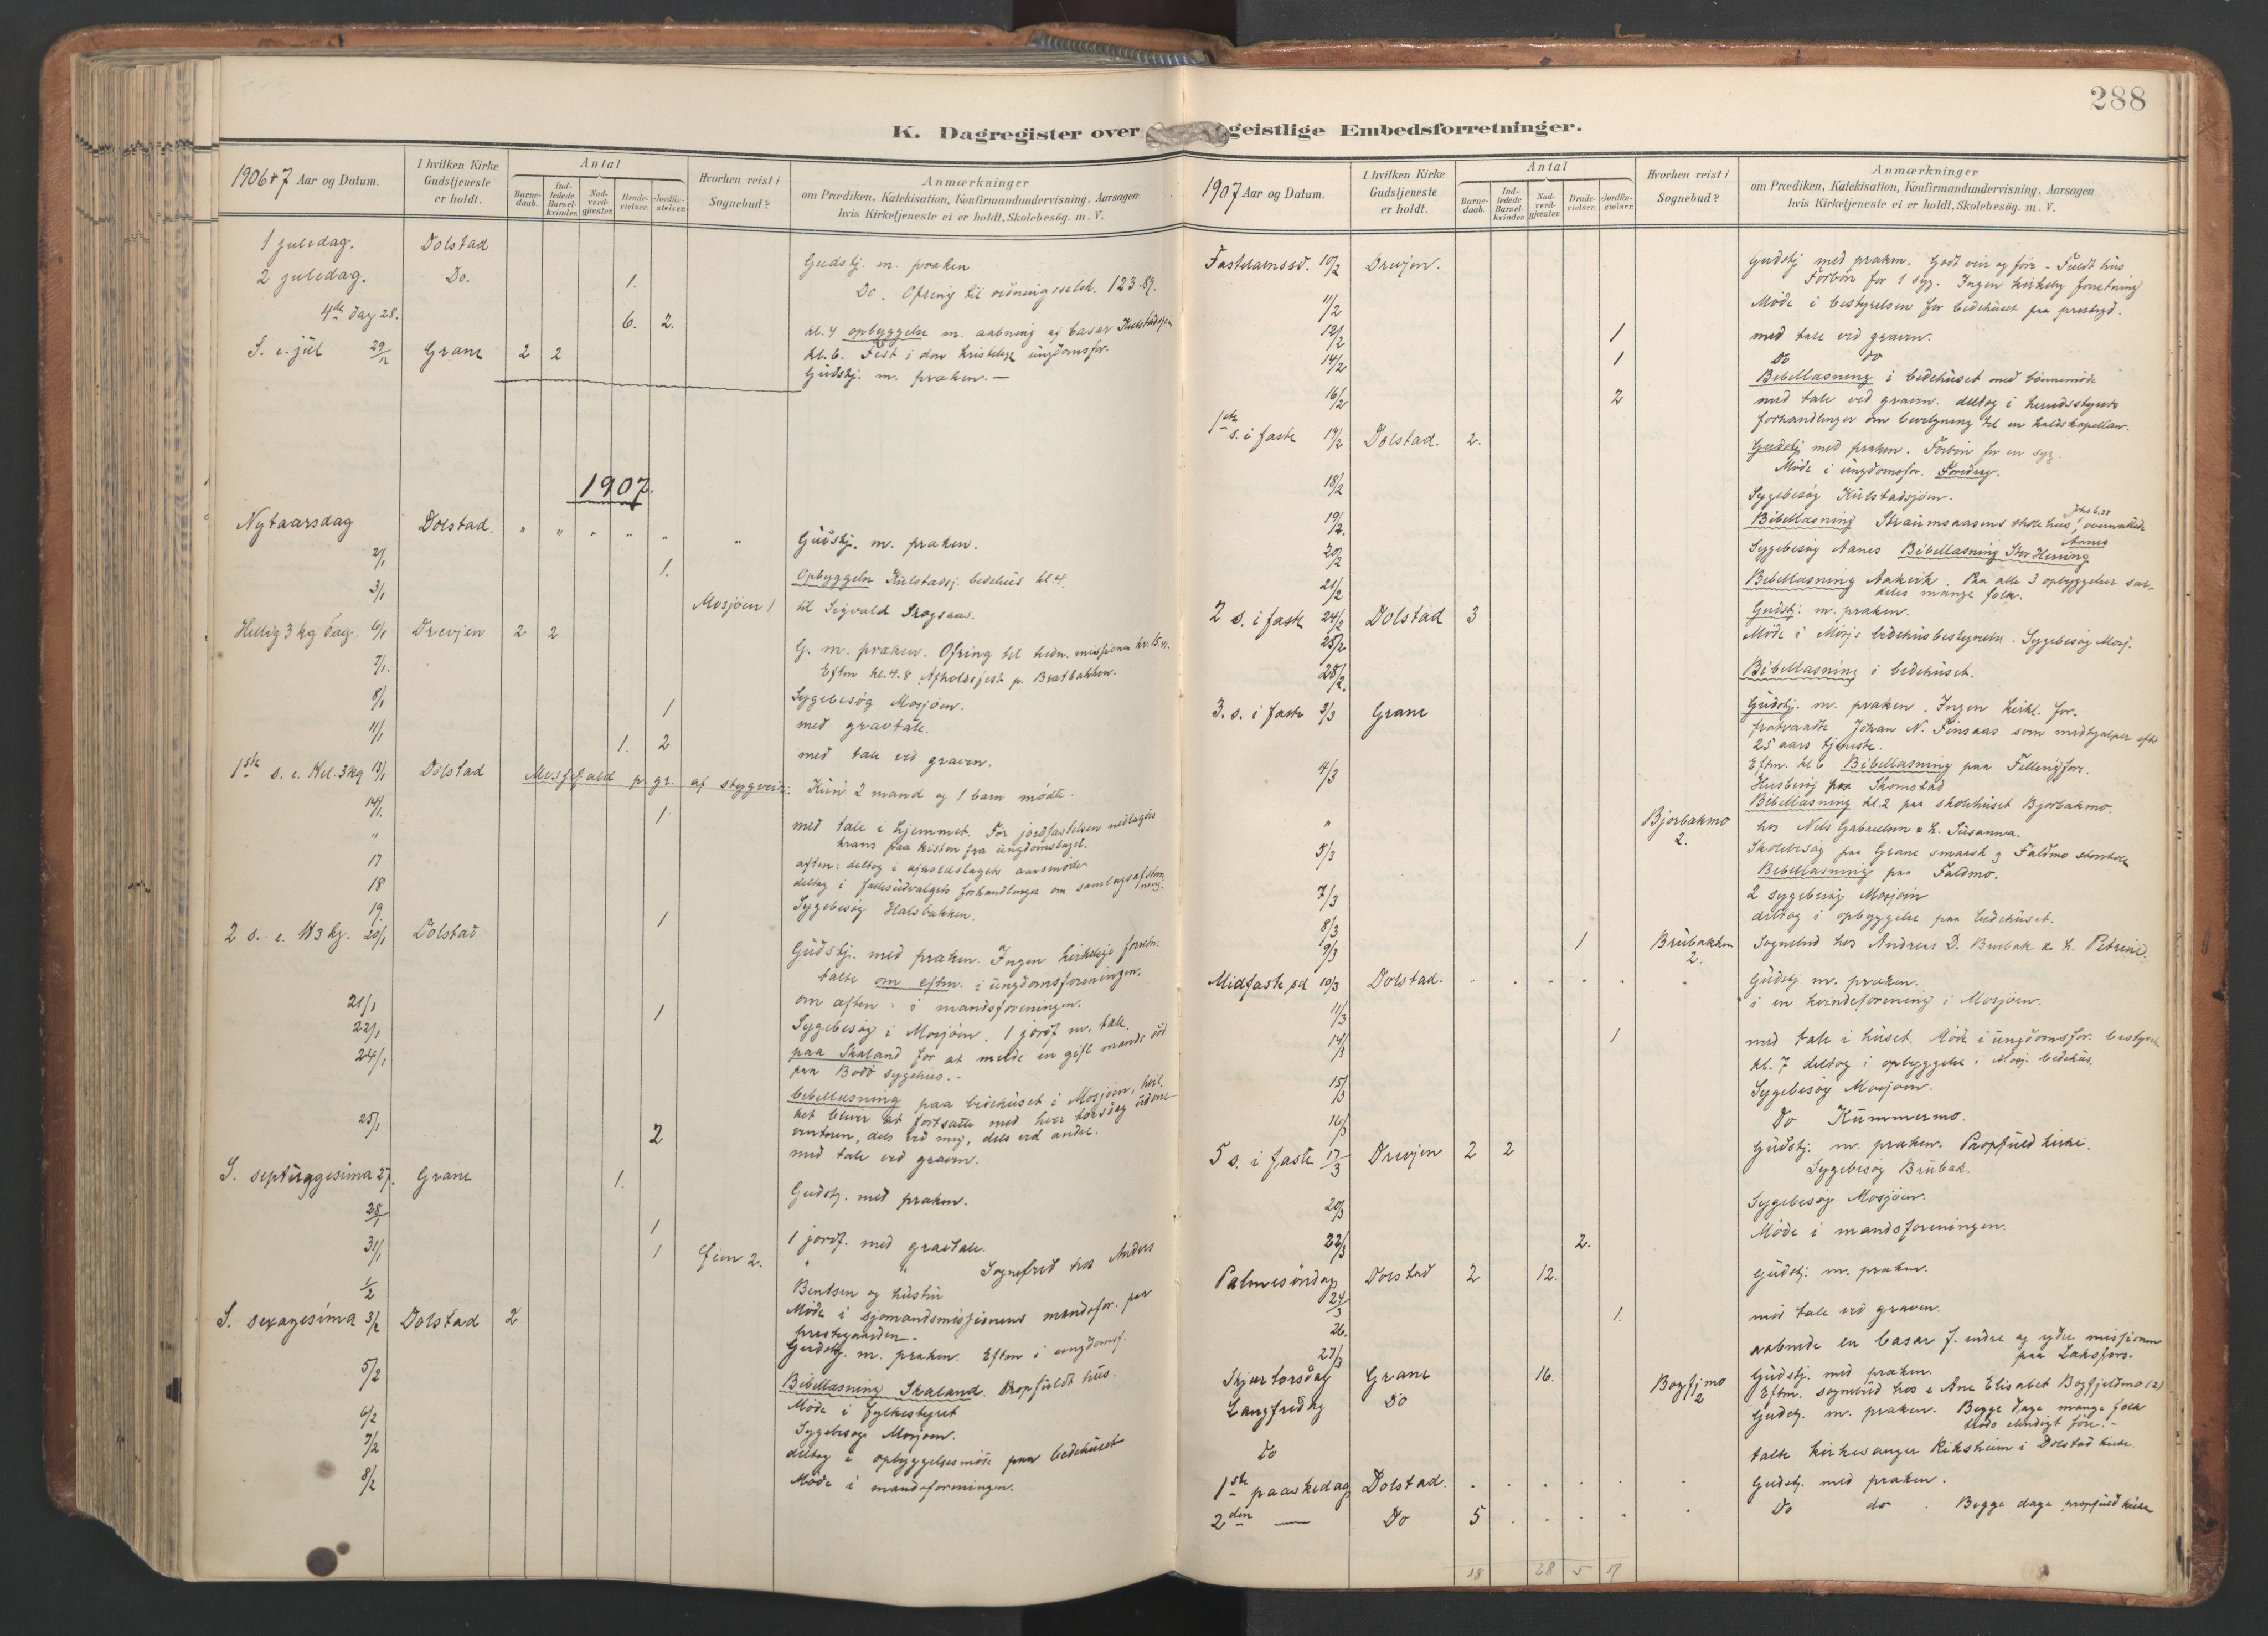 288
K. Dagregister over geistlige Embedsforretninger.
1906 & 7 Aar og Datum.
I hvilken Kirke Gudstjeneste er holdt.
Antal
Barnedaab.
Indledede Barselkvinder.
Nadverdgjester.
Brudevielser.
Jordfæstelser.
Hvorhen reist i Sognebud?
Anmærkninger
om Prædiken, Katekisation, Konfirmandundervisning, Aarsagen
hvis Kirketjeneste ei er holdt, Skolebesøg. m. V.
1 juledag. Dolstad Gudstj. m. præken
2 juledag. Do. 1. Do. Ofring til 123.89.
4de dag 28. 6. 2. kl. 4 opbyggelse m. aabning af basar Kulstadsjøen
kl. 6. Fest i den kristelige ungdomsfor.
S. e. jul 29/12 Grane 2 2 Gudstj. m. præken. —
1907.
Nytaarsdag Dolstad. " " " " " " Gudstj. m. præken.
2/1 1. Opbyggelse Kulstadsj. bedehus kl. 4
3/1 Mosjøen 1 til Sigvald Skogsaas.
Hellig 3 kg dag. 6/1 Drevjen 2 2 G. m. præken. Ofring til hedn. missionen
Eftm kl. 4-8 Afholdsfest p. Bratbakken.
7/1. Sygebesøg Mosjøen.
8/1 1 med gravtale.
11/1 1. 2 med tale ved graven.
1ste s. e. Hel. 3 kg 13/1 Dolstad Messefald p. gr. af stygveir. Kun 2 mand og 1 barn mødte.
14/1. 1. med tale i hjemmet. Før jordfæstelsen nedlagdes
krans paa kisten fra ungdomslaget.
" aften: deltog i afholdslagets aarsmøde
17 deltog i fællesudvalgets forhandlinger om samlagsafstemning.
18 Sygebesøg Halsbakken.
19 1
2 s. e. H 3 kg. 20/1 Dolstad Gudstj. med præken. Ingen kirkelige forretn.
talte om eftm. i ungdomsforeningen.
om aften i mandsforeningen.
21/1 1 Sygebesøg i Mosjøen. 1 jordf m. tale.
22/1 paa Skaland for at melde en gift mands død
paa Bodø sygehus. -
24/1 bibellæsning paa bedehuset i Mosjøen,
ket blever at fortsætte med hver torsdag udover
vinteren, dels ved mig, dels ved andre.
25/1 2 med tale ved graven.
S. septuagesima 27. Grane 1. Gudstj. med præken.
28/1 1 1 jordf. med gravtale.
31/1 1 2. " " Sognebud hos Anders
Bentsen og hustru
1/2 Møde i sjømandsmissionens mandsfor. paa
prestegaarden.
S. sexagesima 3/2 Dolstad 2 Gudstj. m. præken. Eftm i ungdomsf.
5/2 Bibellæsning Skaland. Propfuldt hus.
Møde i fylkestyret
6/2 Sygebesøg Mosjøen.
7/2 deltog i opbyggelsesmøde paa bedehuset
8/2 Møde i mandsforeningen.
1907 Aar og Datum.
I hvilken Kirke Gudstjeneste er holdt.
Antal
Barnedaab.
Indledede Barselkvinder.
Nadverdgjester.
Brudevielser.
Jordfæstelser.
Hvorhen reist i Sognebud?
Anmærkninger
om Prædiken, Katekisation, Konfirmandundervisning, Aarsagen
hvis Kirketjeneste ei er holdt, Skolebesøg. m. V.
Fastelavnssd. 10/2 Drevjen. Gudstj med præken. Godt veir og føre - Fuldt hus
Forbøn for 1 syg. Ingen kirkelig forretning
11/2 Møde i bestyrelsen for bedehuset paa prestegd.
12/2 1 med tale ved graven.
14/2 1 do do
Bibellæsning i bedehuset med bønnemøde
16/2 2 med tale ved graven. deltog i herredsstyrets
forhandlinger om bevilgning til en kaldskapellan.
1ste s. i faste 17/2 Dolstad. 2. Gudstj med præken. Forbøn for en syg.
Møde i ungdomsfor. Foredrag.
18/2 Sygebesøg Kulstadsjøen.
19/2. Bibellæsning Straumsaasens skolehus, overnattede
20/2 Sygebesøg Aanes Bibellæsning Stor Hessing
21/2 Bibellæsning Aakvik. Paa alle 3 opbyggelser særdeles mange folk.
2 s. i faste 24/2 Dolstad 3 Gudstj. m. præken.
25/2 Møde i Mosjs bedehusbestyrelse. Sygebesøg Mosj.
28/2. Bibellæsning i bedehuset.
3. s. i faste 3/3 Grane Gudstj. m. præken. Ingen kirkl. for.
fratraadte Johan N. Finsaas som medhjælper efter
25 aars tjeneste.
Eftm. kl 6 Bibellæsning paa Fellingfors.
4/3 Husbesøg paa Skomstad
Bibellæsning kl. 2 paa skolehuset Bjorbækmo.
" Bjorbækmo 2. hos Nels Gabrielsen & h. Susanna.
5/3 Skolebesøg paa Grane smaask og Faldmo storskole
Bibellæsning paa Faldmo.
7/3 2 sygebesøg Mosjøen
8/3 deltog i opbyggelse paa bedehuset.
9/3 1 Brubakken 2. Sognebud hos Andreas D. Brubak & h. Petrine.
Midfaste sd 10/3 Dolstad. Gudstj m. præken.
11/3 i en kvindeforening i Mosjøen.
14/3 1 med tale i huset. Møde i ungdomsfor. bestyrelse
kl. 7 deltog i opbyggelse i Mosj. bedehus.
15/3 Sygebesøg Mosjøen.
16/3 Do Kummermo.
5 s. i faste 17/3 Drevjen 2 2 Gudstj. m. præken. Propfuld kirke.
Sygebesøg Brubak.
20/3 Sygebesøg Mosjøen.
22/3 2. Møde i mandsforeningen.
Palmesøndag 24/3 Dolstad 2 12. Gudstj. m. præken.
26. 1. med tale ved graven.
27/3 aabnede en basar f. indre og ydre missionen
paa Laksfors.
Skjærtorsdag Grane 16. Gudstj. med præken.
Bogfjmo 2 Eftm. sognebud hos e Ane Elisabet Bogfjeldmo (2)
Langfredag Do Gudstj. m. præken. Begge dage mange folk
trods elendigt føre. -
Do talte kirkesanger Riksheim i Dolstad kirke.
1ste paaskedag Dolstad. Gudstj. med præken.
2den — Do 5 Do do. Begge dage propfuld kirke
18 28 5 17